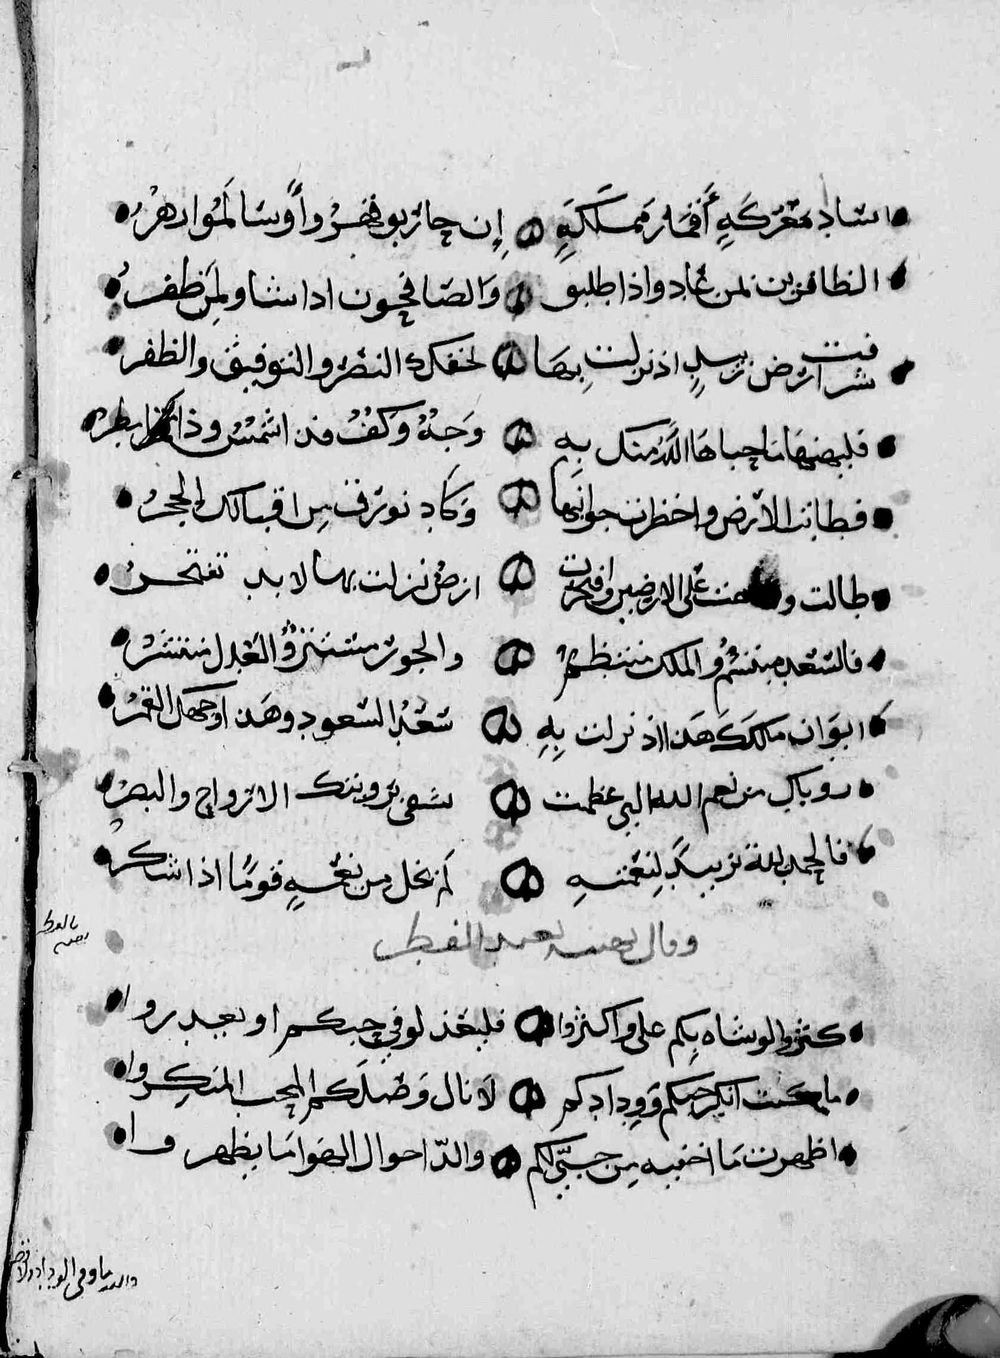 اساد معركة أقمار مملكة إن جاربو فخروا أو سالموا دهر
الظافرين لمن عادو اذا طلبو والصافحون اذا شاو لمن ظفر
شرفت ارض زبيد اذ نزلت بها لخفك النصر والتوفيق والظفر
فليهنها ما حباها الله منك به وجه وكف من الشمس وذا
فطابت الارض واخظرت جوانبها وكاد تورق من اقبالك الحجر
طالت و على الارضين وافتخرت ارض نزلت بها لا بد تفتخر
فالسعد مبتسم والملك منتظم والجور مستتر والعدل منتشر
ايوان ملكك هذا اذ نزلت به سعد السعود وهذا وجهك القمر
روياك من نعم الله التي عظمت تشفى برويتك الارواح والبصر
فالحمد لله نزيدك لنعمته لم نخل من نعمه قوما اذا شكر
وقال يهنيه بعيد الفطر
كثروا الوشاه بكم على واكثروا فليعذلو في حبكم او يعذروا
ما كنت انكر حبكم وودادكم لا نال وصلكم المحب المنكروا
اظهرت ما اخفيه من حبي لكم والذ احوال الهوا ما يظهر وا